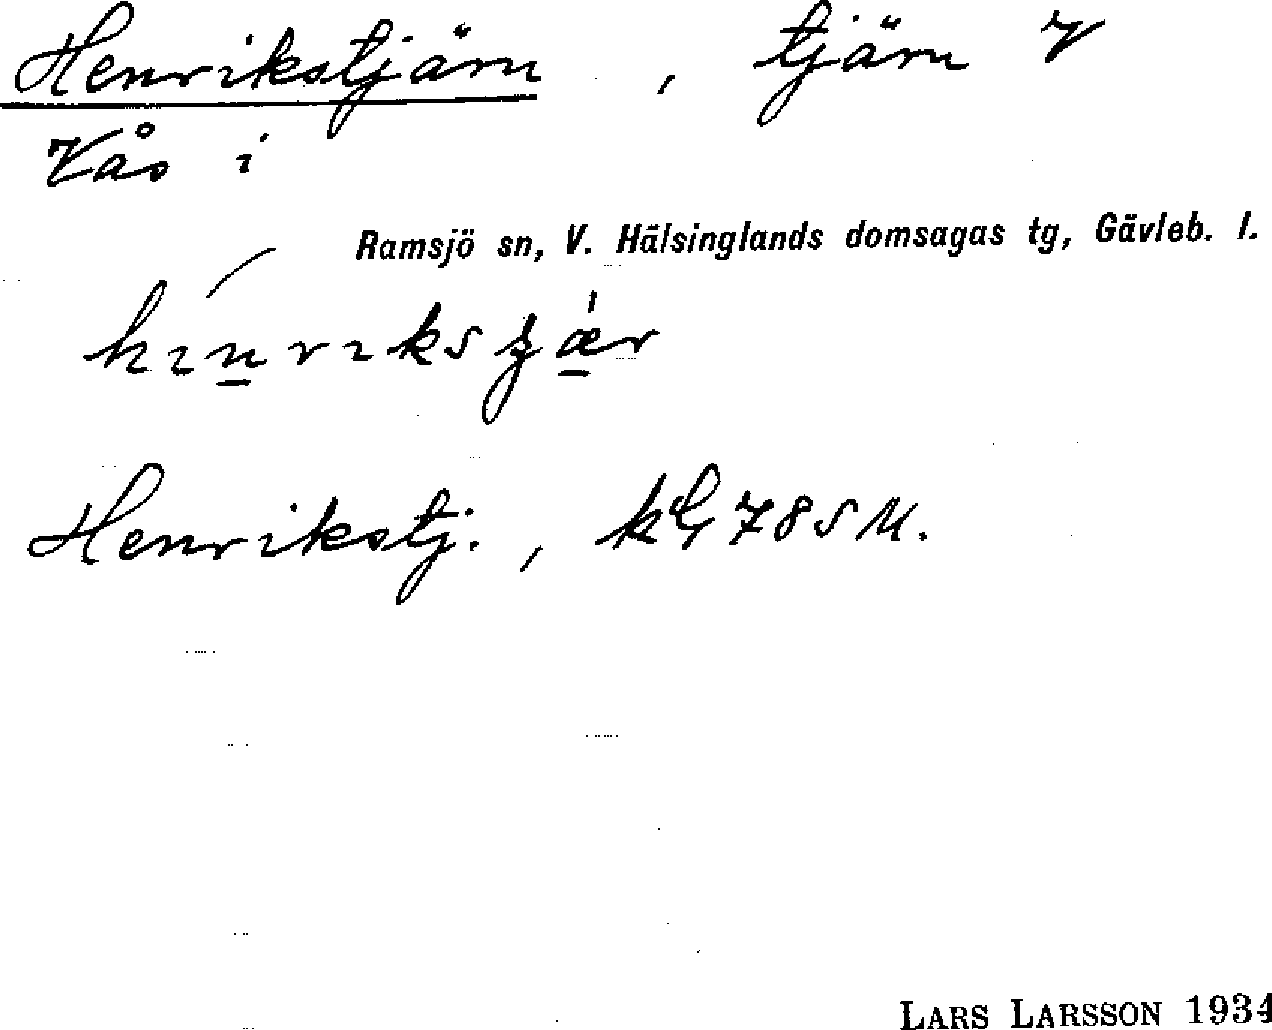 Henrikstjärn, tjärn V
Vås i
Ramsjö sn, V. Hälsinglands domsagas tg, Gävleb. l.
Henrikstj., kG 785 M.
LARS LARSSON 1934